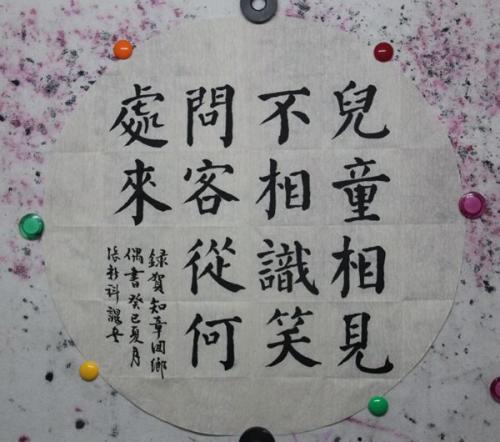 兒童相見
不相識笑
問客從何
處來
録賀知章回鄉
偶書癸巳夏月